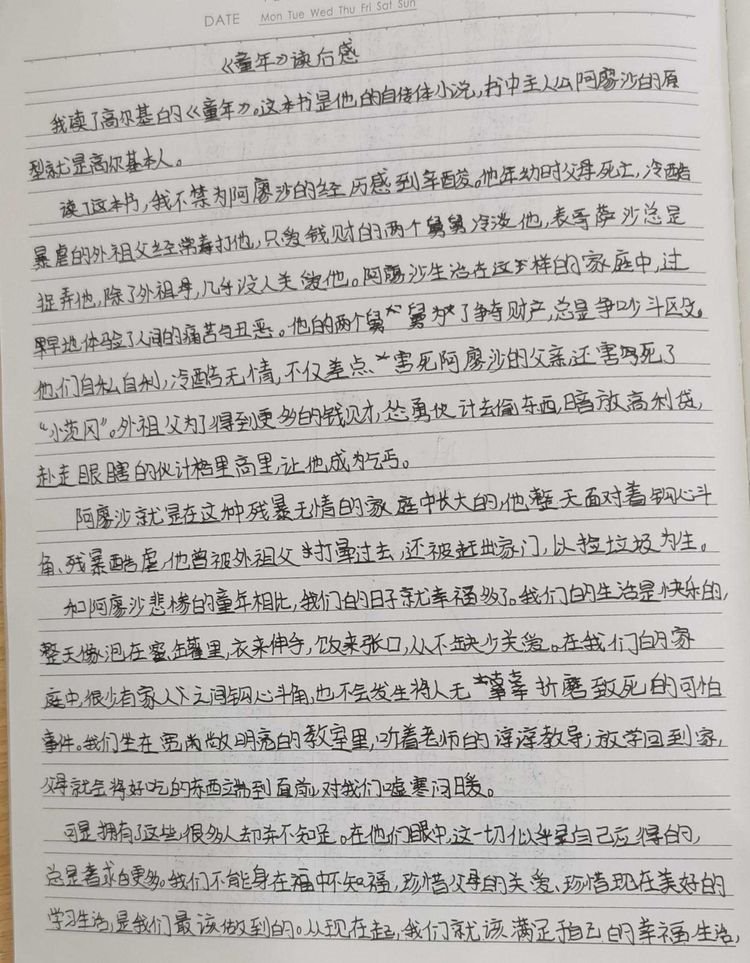 DATE Mon Tue Wed Thu Fri Sat Sun
《童年》读后感
我读了高尔基的《童年》。这本书是他的自传体小说，书中主人公阿廖沙的原
型就是高尔基本人。
读了这本书，我不禁为阿廖沙的经历感到辛酸。他年幼时父母死亡，冷酷
暴虐的外祖父经常毒打他，只爱钱财的两个舅舅冷淡他，表哥萨沙总是
捉弄他，除了外祖母，几乎没人关爱他。阿廖沙生活在这样的家庭中，过
早地体验了人间的痛苦与丑恶。他的两个舅舅为了争夺财产，总是争吵斗殴。
他们自私自利，冷酷无情，不仅差点害死阿廖沙的父亲，还害死了
“小茨冈”。外祖父为了得到更多的钱财，怂勇伙计去偷东西，暗放高利贷，
赴走眼瞎的伙计格里高里，让他成为乞丐。
阿廖沙就是在这种残暴无情的家庭中长大的，他整天面对着钩心斗
角、残暴酷虐，他曾被外祖父打晕过去，还被赶出家门，以捡垃圾为生。
和阿廖沙悲惨的童年相比，我们的日子就幸福多了。我们的生活是快乐的，
整天像泡在蜜罐里，衣来伸手，饭来张口，从不缺少关爱。在我们的家
庭中，很少有家人之间钩心斗角，也不会发生将人无辜折磨致死的可怕
事件。我们坐在宽尚做明亮的教室里，听着老师的谆谆教导；放学回到家，
父母就会将好吃的东西端到面前，对我们嘘寒问暖。
可是拥有了这些，很多人却并不知足。在他们眼中，这一切似乎是自己应得的，
总是奢求的更多。我们不能身在福中不知福，珍惜父母的关爱、珍惜现在美好的
学习生活，是我们最该做到的。从现在起，我们就该满足于自己的幸福生活，